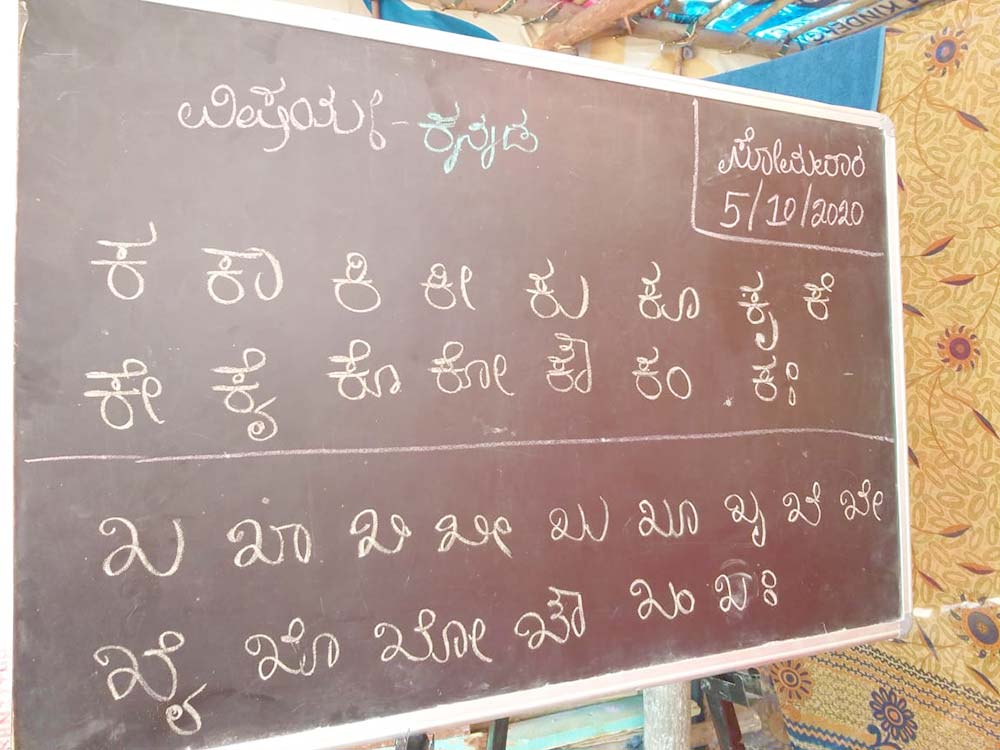 ವಿಷಯ - ಕನ್ನಡ
ಸೋಮವಾರ
5/10/2020
ಕ ಕಾ ಕಿ ಕೀ ಕು ಕೂ ಕೃ ಕೆ
ಕೇ ಕೈ ಕೊ ಕೋ ಕೌ ಕಂ ಕಃ
ಖ ಖಾ ಖಿ ಖೀ ಖು ಖೂ ಖೃ ಖೆ ಖೇ
ಖೈ ಖೊ ಖೋ ಖೌ ಖಂ ಖಃ